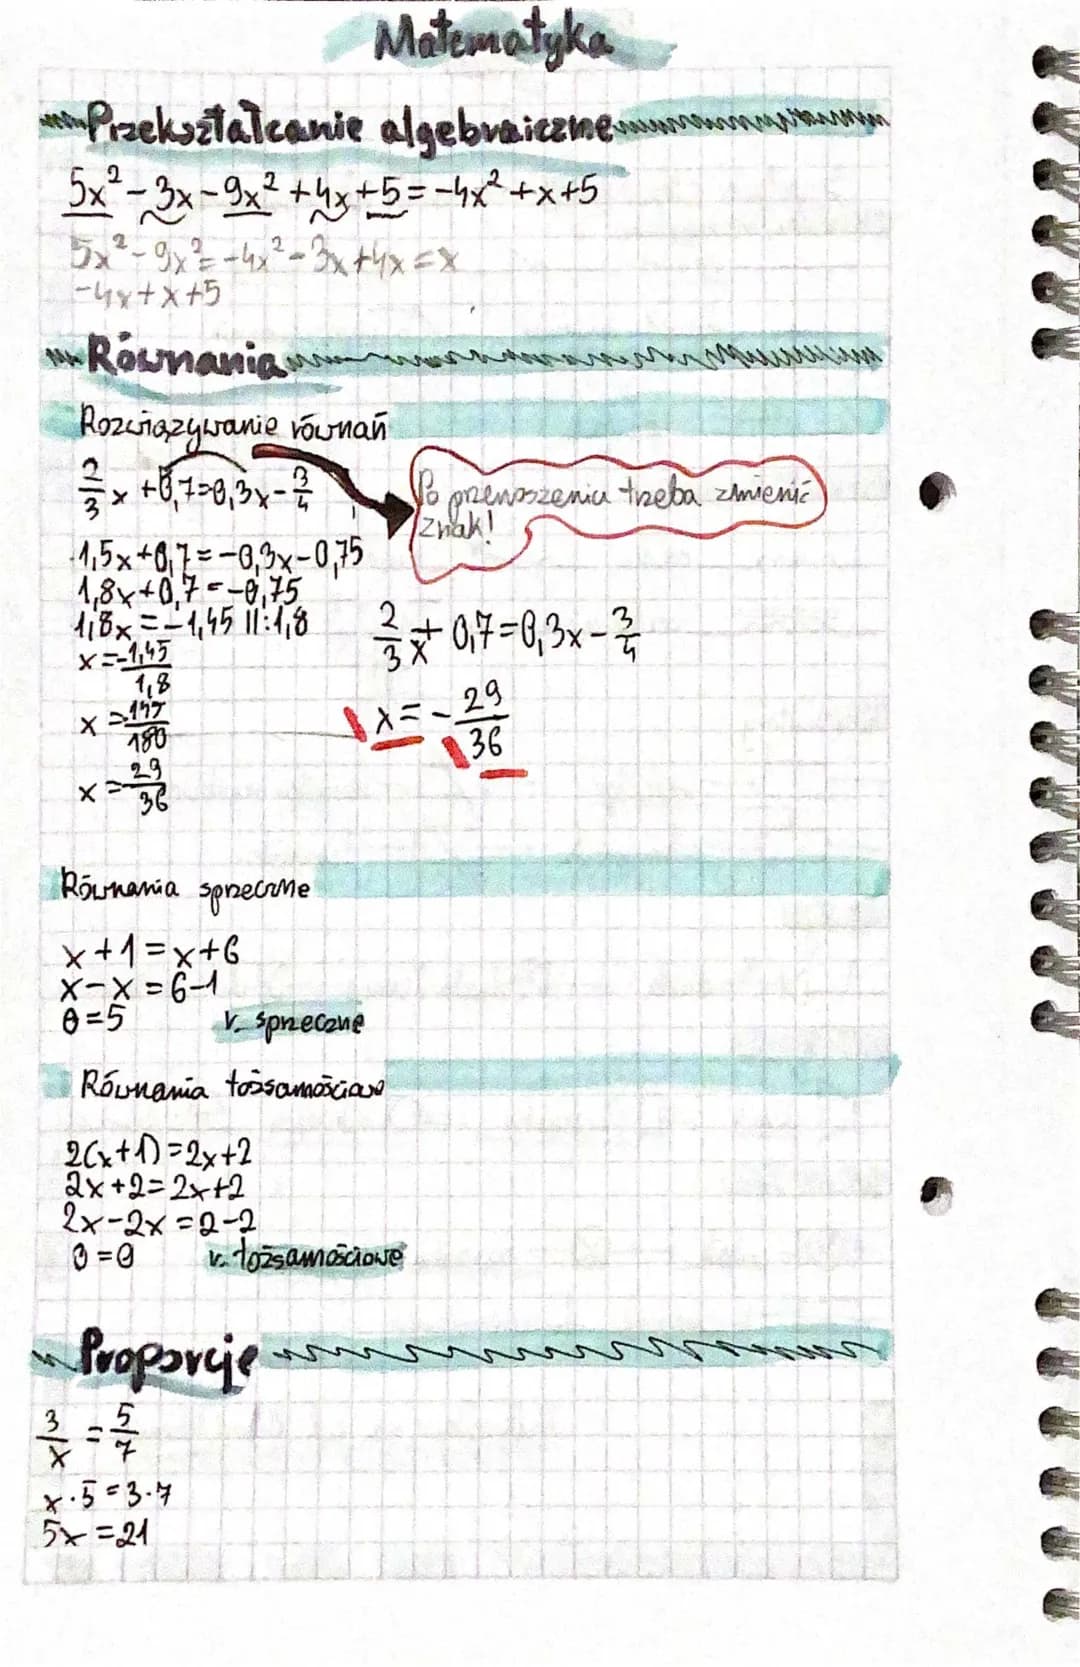 Matematyka
Przekształcanie algebraiczne
5x² - 3x - 9x² + 4x + 5 = -4x² + x + 5
5x² - 9x² = -4x² - 3x + 4x = x
-4x + x + 5
Równania
Rozwiązywanie równań
2/3 x + 0,7 = 0,3x - 3/4
Po przenoszeniu trzeba zmienić
znak!
1,5x + 0,7 = -0,3x - 0,75
1,8x + 0,7 = -0,75
1,8x = -1,45 ||:1,8
x = -1,45/1,8
x = -145/180
x = -29/36
2/3 x + 0,7 = 0,3x - 3/4
x = - 29/36
Równania sprzeczne
x + 1 = x + 6
x - x = 6 - 1
0 = 5 r. sprzeczne
Równania tożsamościowe
2(x + 1) = 2x + 2
2x + 2 = 2x + 2
2x - 2x = 2 - 2
0 = 0 r. tożsamościowe
Proporcje
3/x = 5/7
x · 5 = 3 · 7
5x = 21